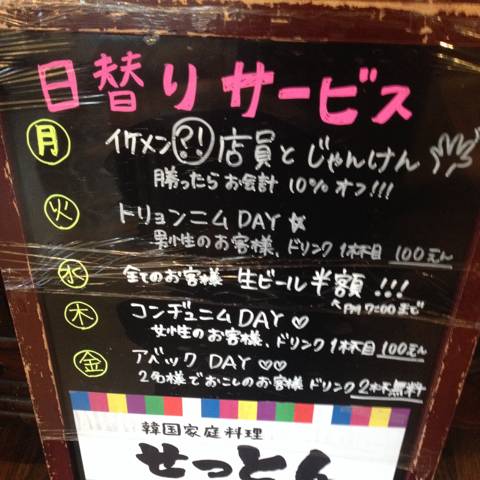 日替りサービス
月 イケメン?!店員とじゃんけん
勝ったらお会計 10% オフ!!!
火 トリョンニム DAY ☆
男性のお客様、ドリンク 1杯目 100えん
水 全てのお客様 生ビール 半額 !!!
PM 7:00まで
木 コンヂュニム DAY ♡
女性のお客様、ドリンク 1杯目 100えん
金 アベック DAY ♡♡
2名様でおこしのお客様 ドリンク 2杯無料
韓国家庭料理
せっとん